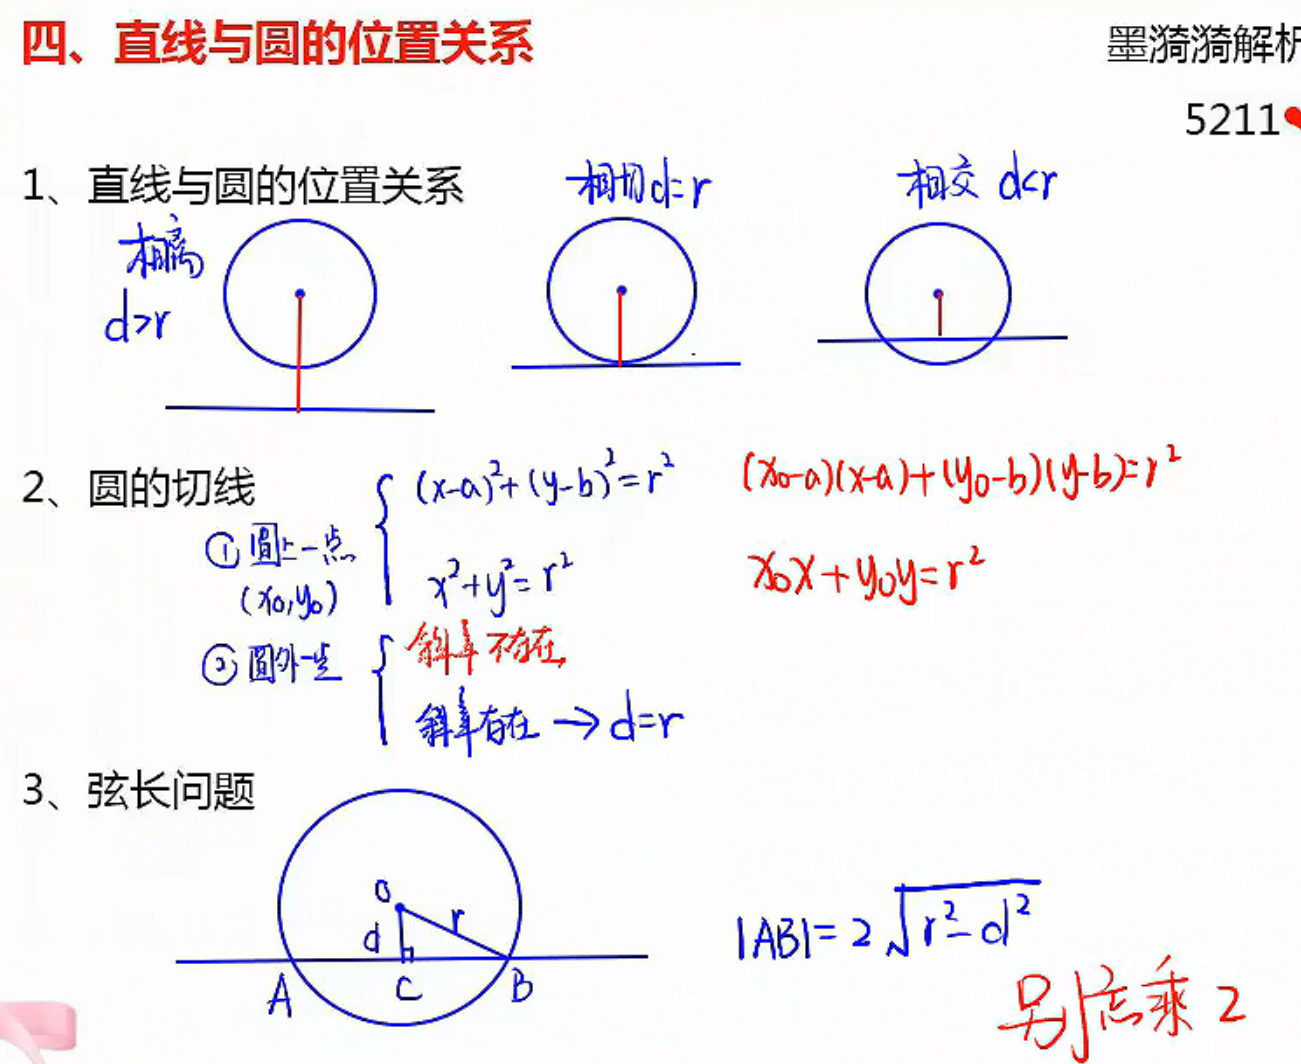 四、直线与圆的位置关系
墨漪漪解析
5211❤
1、直线与圆的位置关系
相离
d>r
相切d=r
相交 d<r
2、圆的切线
①圆上一点
(x₀,y₀)
(x-a)²+(y-b)²=r²
(x₀-a)(x-a)+(y₀-b)(y-b)=r²
x²+y²=r²
x₀x+y₀y=r²
②圆外一点
斜率不存在
斜率存在→d=r
3、弦长问题
O
d
r
A
C
B
|AB|=2√(r²-d²)
别忘乘2